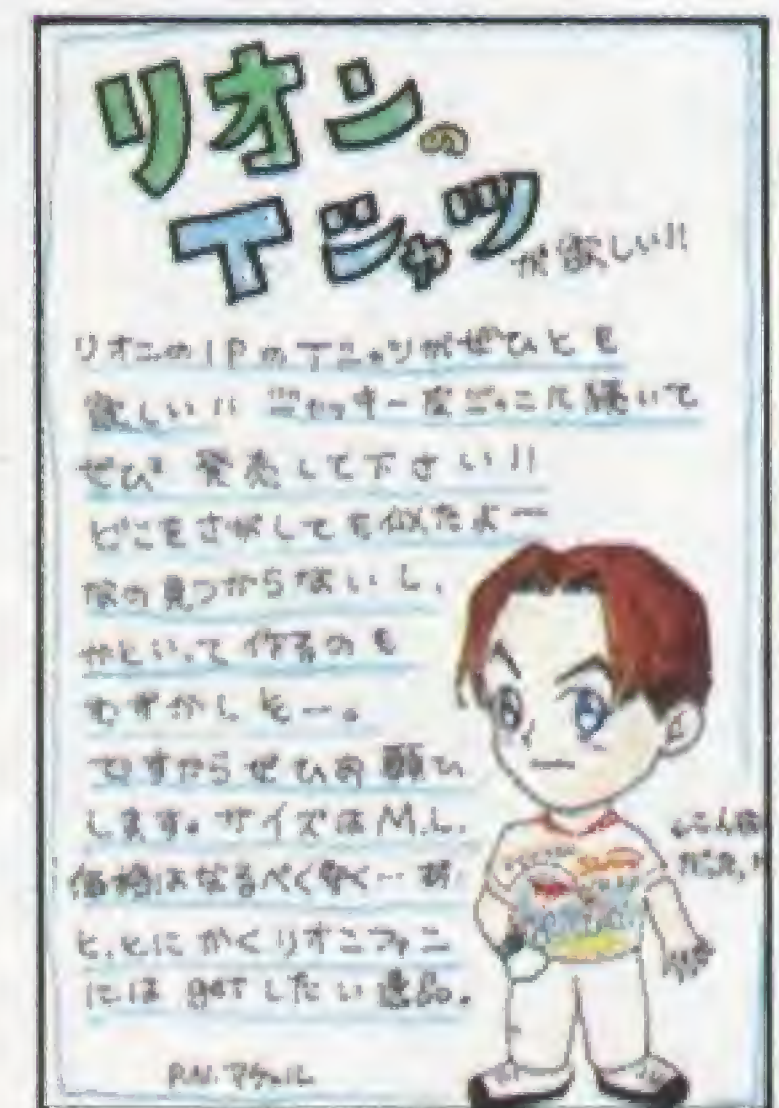 リオンの
Tシャツが欲しい!!
リオンの1PのTシャツがぜひとも
欲しい!! ジャッキーバージョンに続いて
ぜひ発売して下さい!!
どこをさがしても似たよー
なの見つからないし、
かといって作るのも
むずかしもー。
ですからぜひお願い
します。サイズはM.L.
価格はなるべく安く…あ
と、とにかくリオンファン
には getしたい逸品。
P.N.
こんな